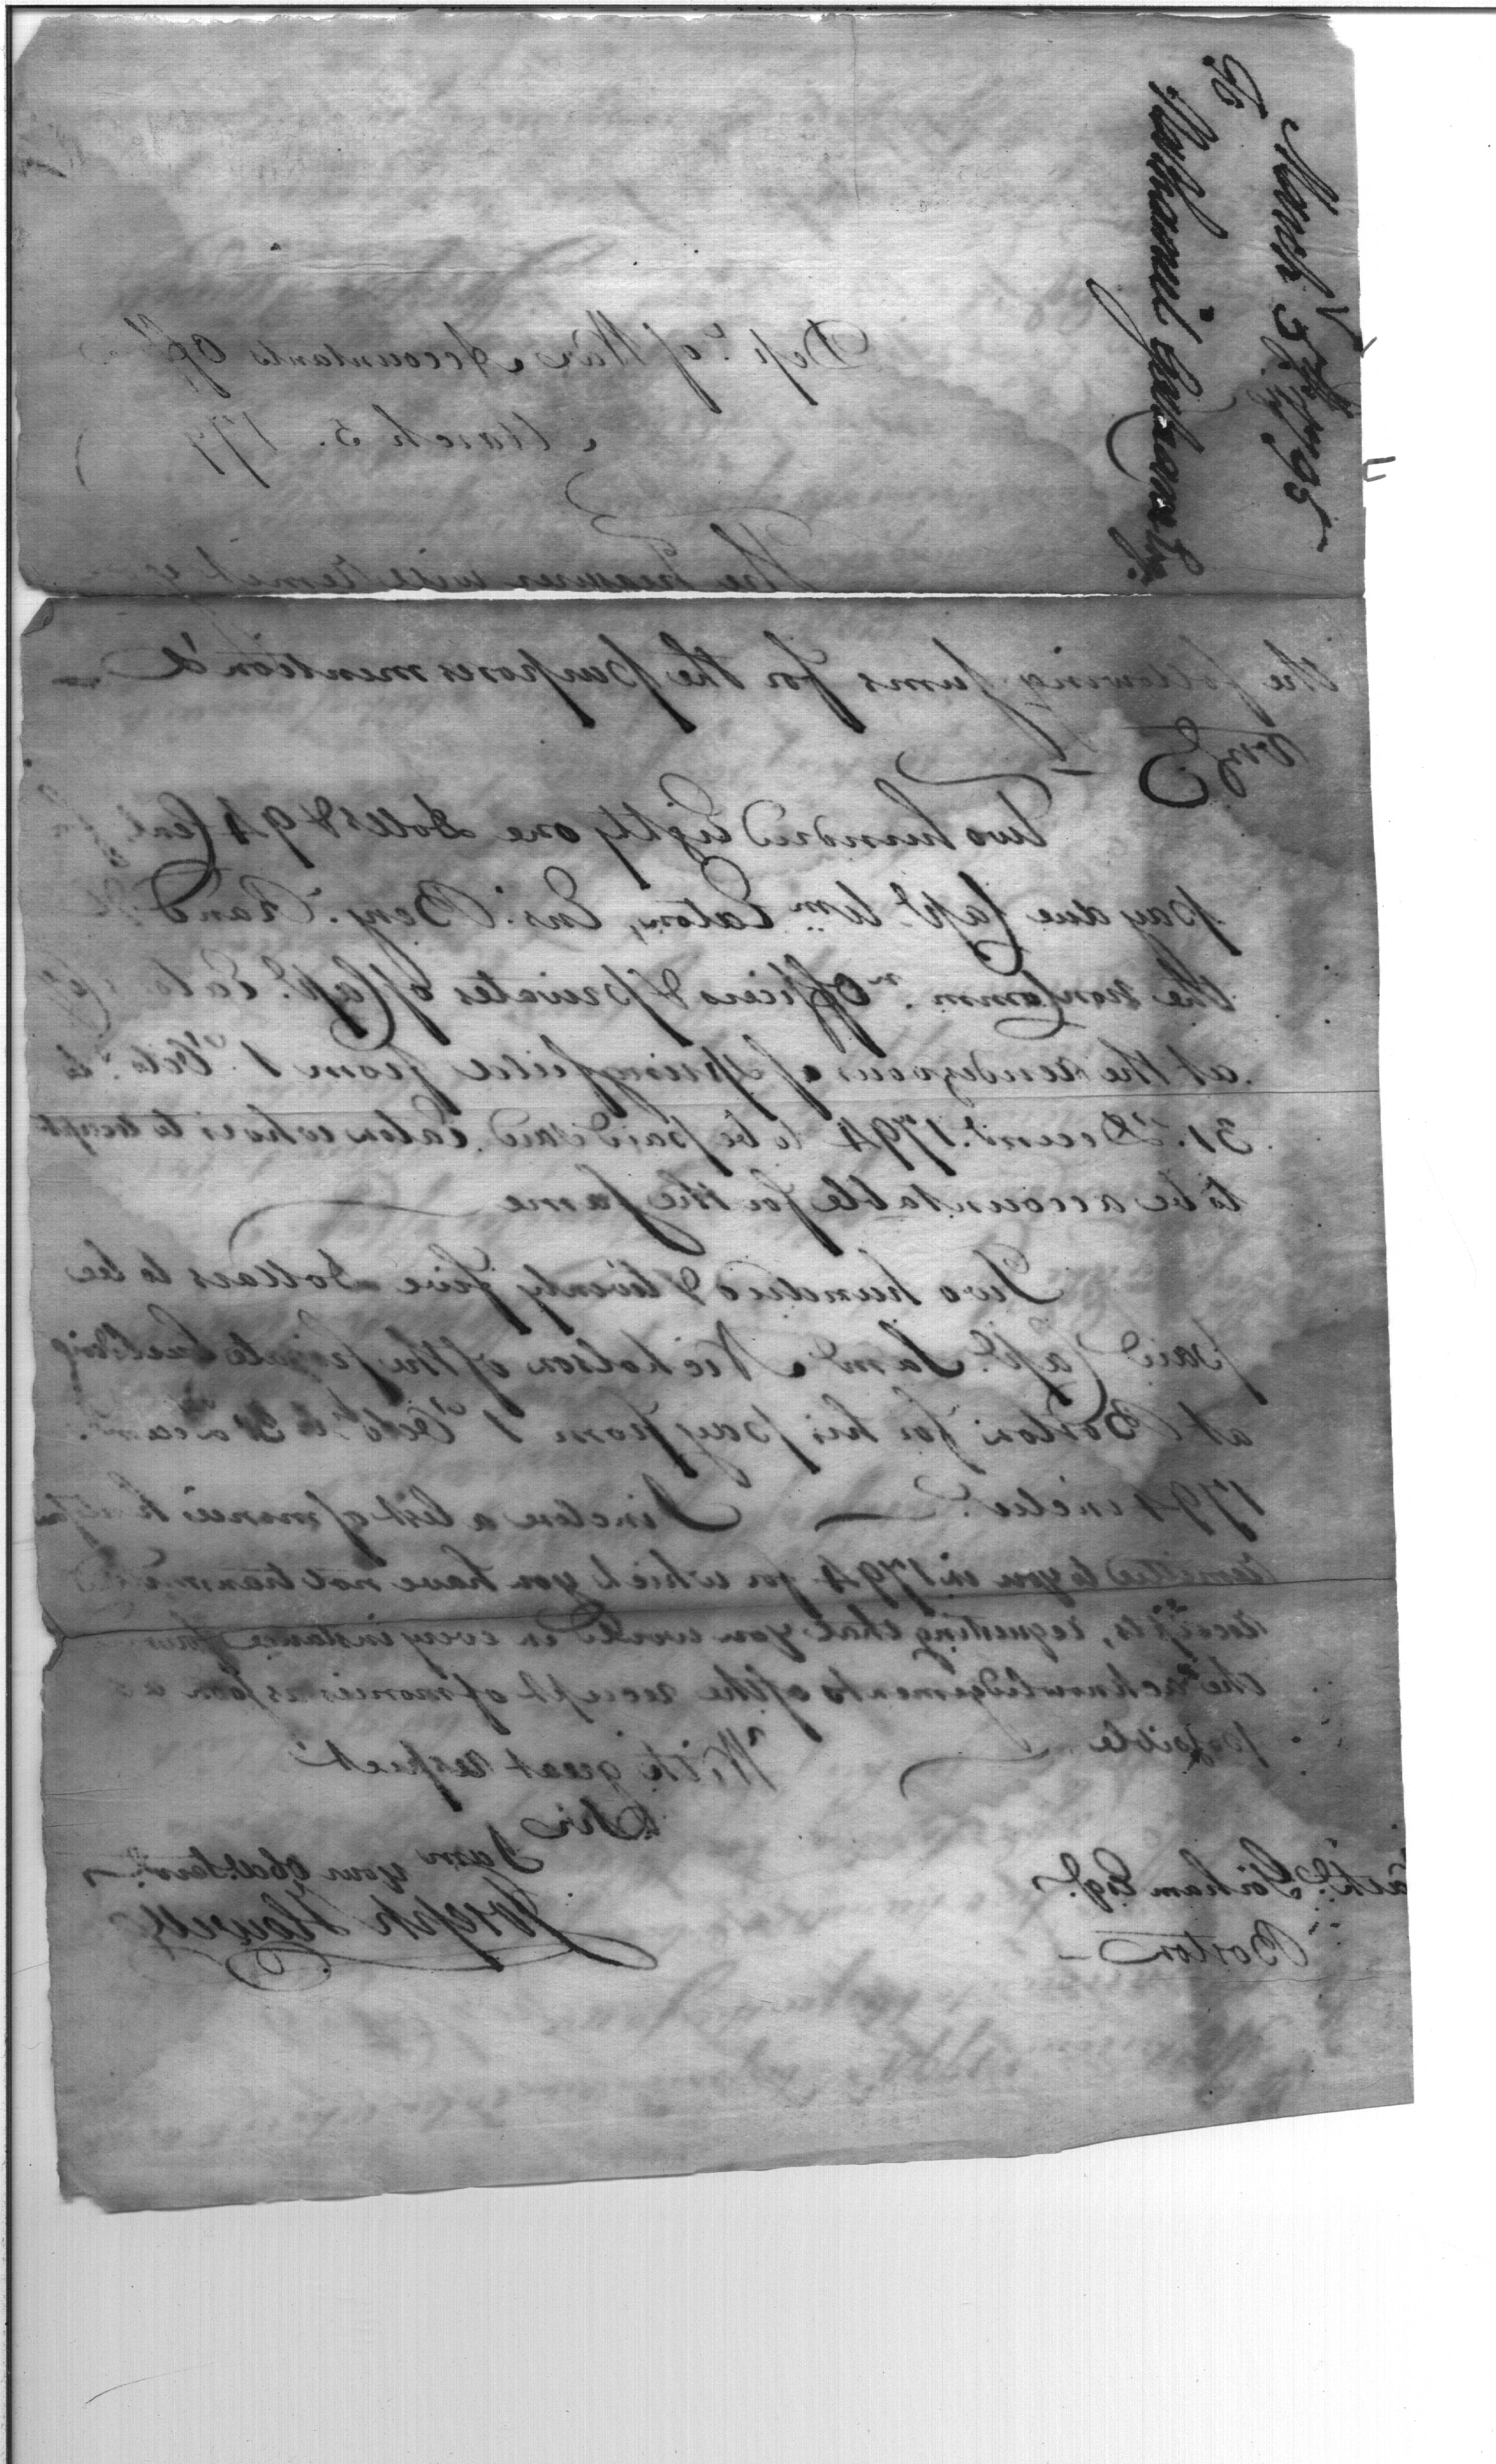 To
Nathaniel Gorham Esq.
March 5th 1795
Dept. of War Accountants Off
March 5. 179
The Treasurer will remit
the following sums for the purposes mention'd
Two hundred Eighty one Dolls & 94 Cent
pay due Capt. Wm. Eaton, Ens. Benj. Rand
the non Commn. officers & privates of Capt. Eatons
at the rendezvous of Springfield from 1 Octo. to
31. Decemr. 1794 to be paid said Eaton who is to receipt
to be accountable for the same
Two hundred & twenty five Dollars to be
paid Capt. Saml Nicholson of the frigate building
at Boston for his pay from 1 Octo to 31 Decemr.
1794 inclus. I inclose a list of monies
remitted to you in 1794 for which you have not transmitted
receipts, requesting that you would in every instance
the acknowledgements of the receipt of monies as soon as
possible
With great respect
Sir
I am your Obed. Servt.
Joseph Howell
Nathl. Gorham Esqr.
Boston